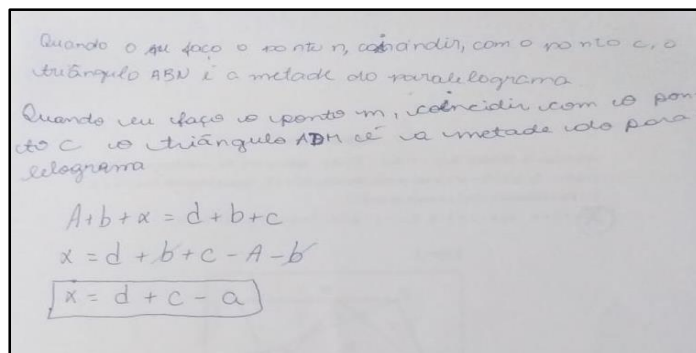 Quando o eu faço o ponto n, coincidir, com o ponto c, o
triângulo ABN é a metade do paralelograma
Quando eu faço o ponto m, coincidir com o pon-
to C o triângulo ADM é a metade do para
lelograma
A+b+x = d+b+c
x = d+b+c-A-b
x = d+c-a